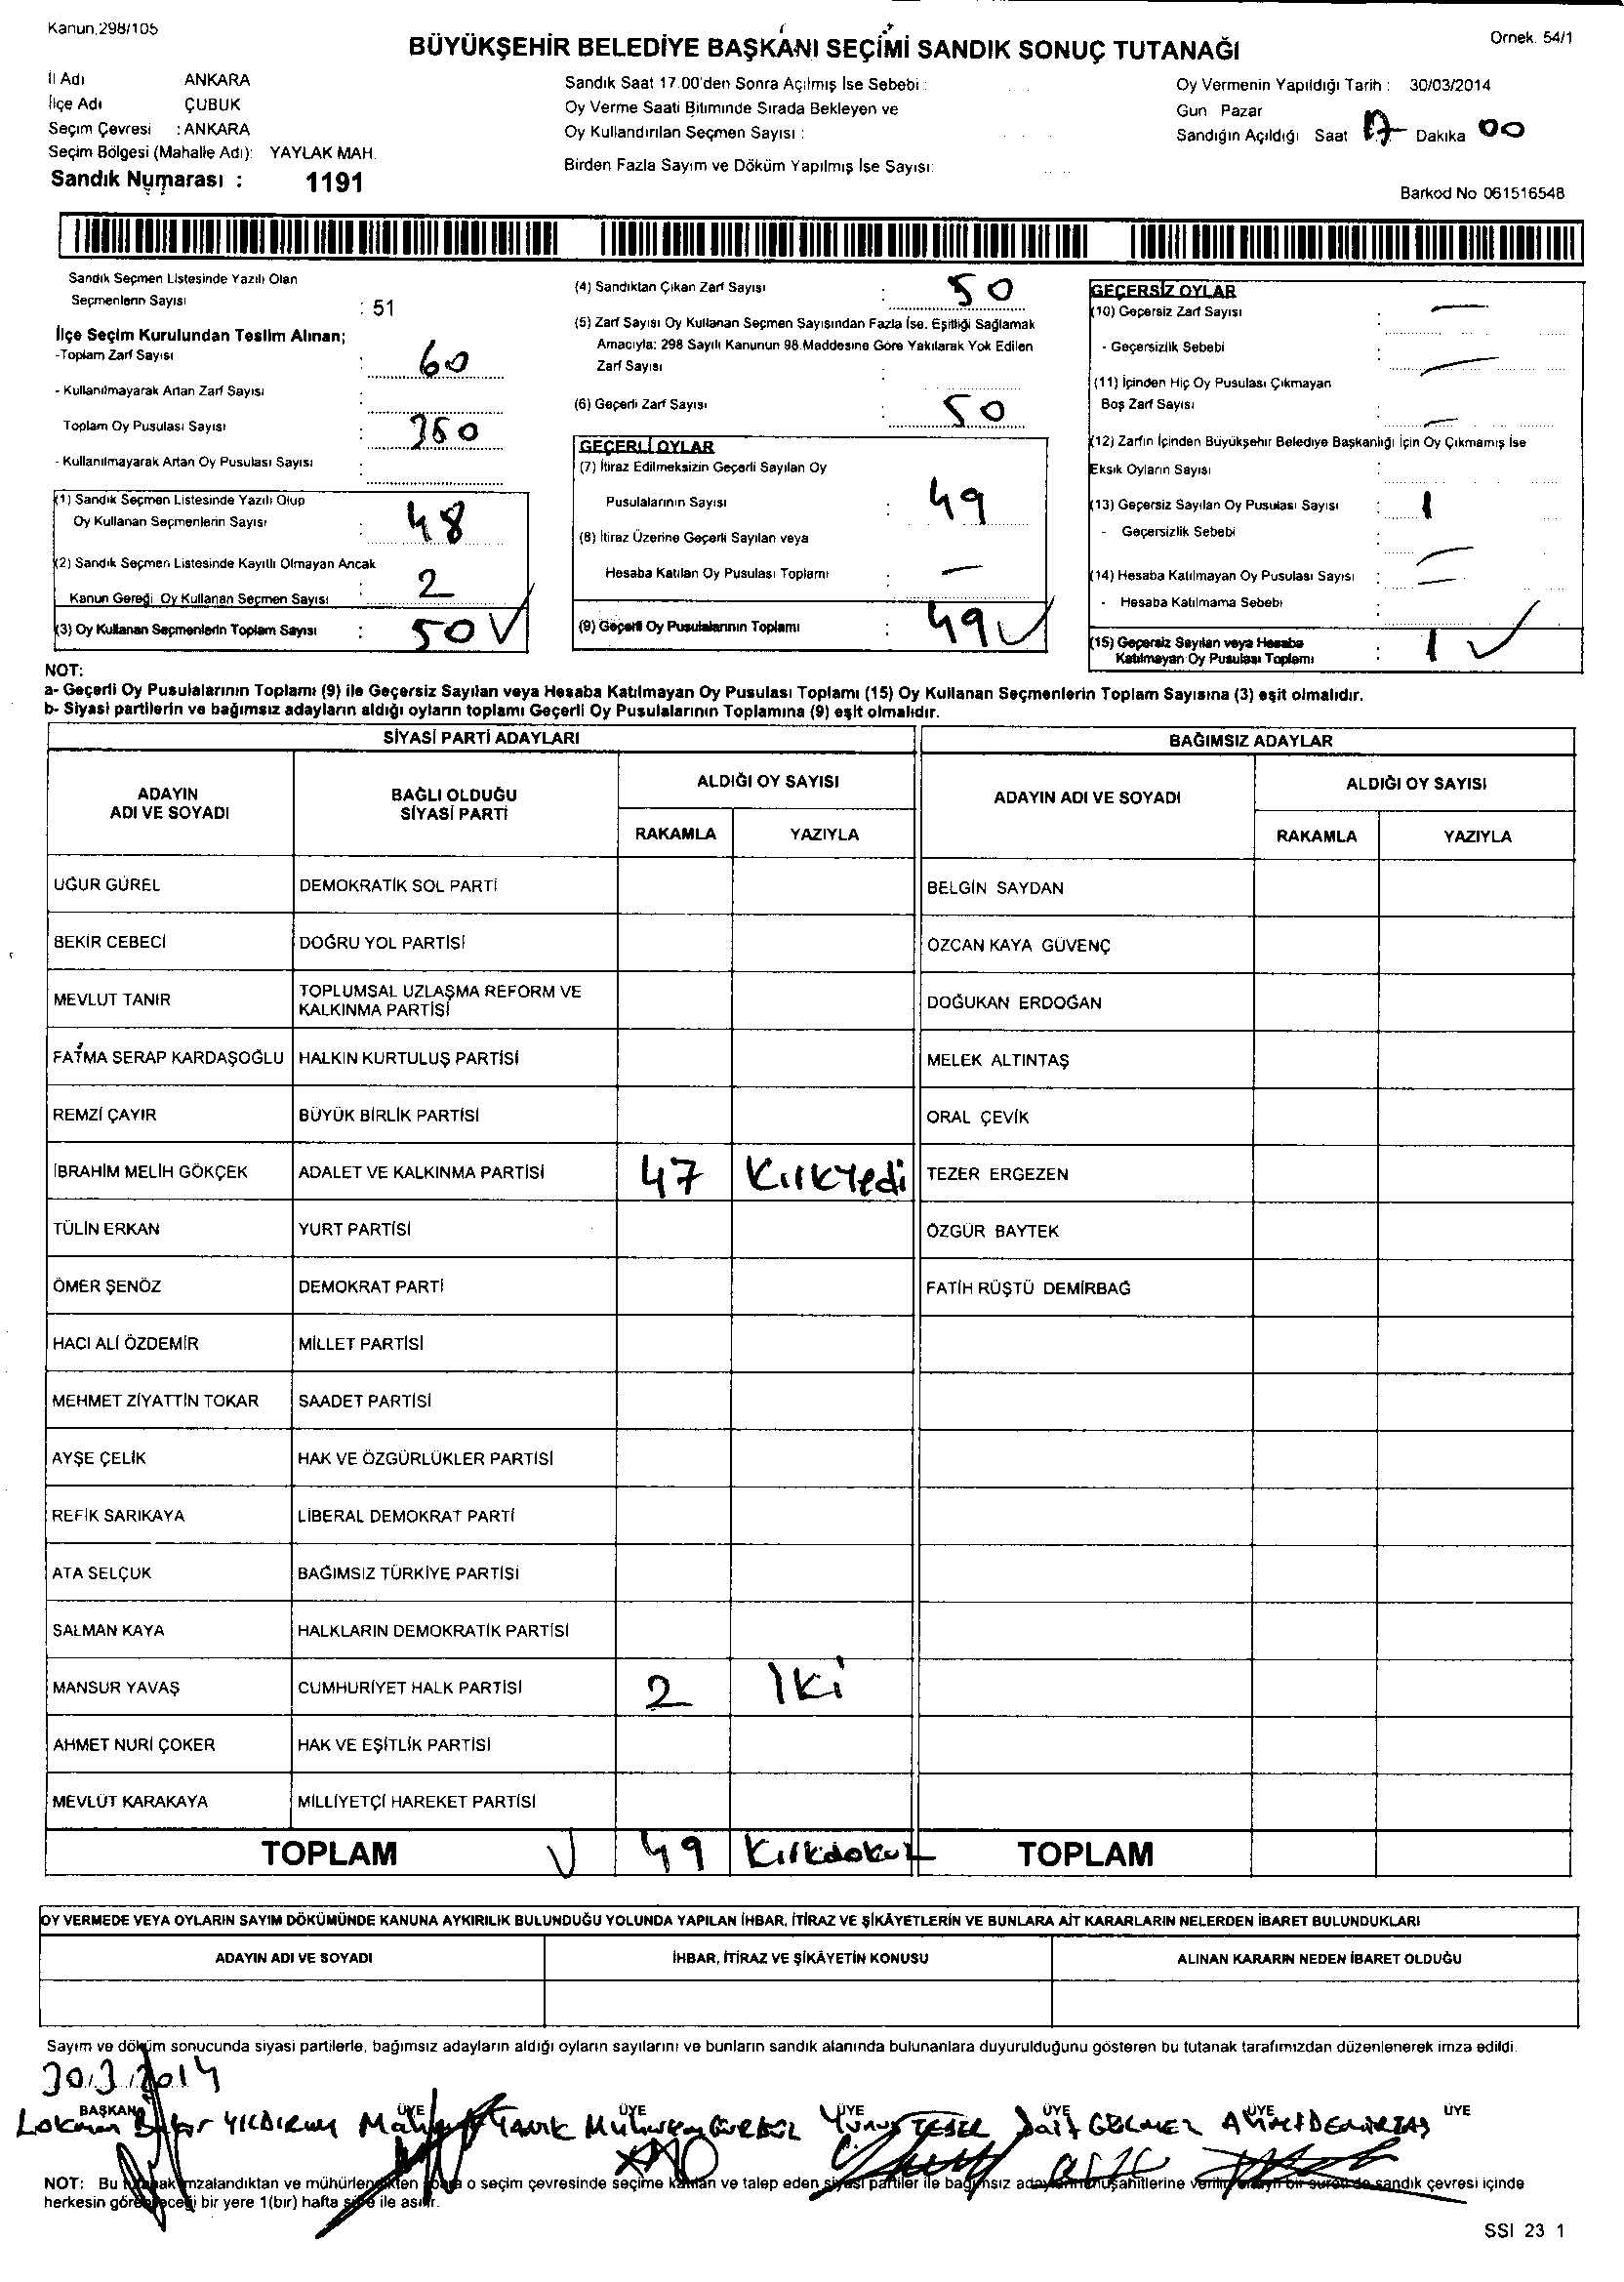 Kanun.298/105
BÜYÜKŞEHİR BELEDİYE BAŞKANI SEÇİMİ SANDIK SONUÇ TUTANAĞI
Örnek. 54/1
İl Adı ANKARA
İlçe Adı ÇUBUK
Seçim Çevresi : ANKARA
Seçim Bölgesi (Mahalle Adı): YAYLAK MAH.
Sandık Numarası : 1191
Sandık Saat 17.00'den Sonra Açılmış İse Sebebi :
Oy Verme Saati Bitiminde Sırada Bekleyen ve
Oy Kullandırılan Seçmen Sayısı :
Birden Fazla Sayım ve Döküm Yapılmış İse Sayısı:
Oy Vermenin Yapıldığı Tarih : 30/03/2014
Gün Pazar
Sandığın Açıldığı Saat 17 Dakika 00
Barkod No 061516548
Sandık Seçmen Listesinde Yazılı Olan
Seçmenlerin Sayısı : 51
İlçe Seçim Kurulundan Teslim Alınan;
-Toplam Zarf Sayısı : 60
- Kullanılmayarak Artan Zarf Sayısı :
Toplam Oy Pusulası Sayısı : 360
- Kullanılmayarak Artan Oy Pusulası Sayısı :
(1) Sandık Seçmen Listesinde Yazılı Olup
Oy Kullanan Seçmenlerin Sayısı : 48
(2) Sandık Seçmen Listesinde Kayıtlı Olmayan Ancak
Kanun Gereği Oy Kullanan Seçmen Sayısı : 2
(3) Oy Kullanan Seçmenlerin Toplam Sayısı : 50
(4) Sandıktan Çıkan Zarf Sayısı : 50
(5) Zarf Sayısı Oy Kullanan Seçmen Sayısından Fazla İse. Eşitliği Sağlamak
Amacıyla: 298 Sayılı Kanunun 98.Maddesine Göre Yakılarak Yok Edilen
Zarf Sayısı :
(6) Geçerli Zarf Sayısı : 50
GEÇERLİ OYLAR
(7) İtiraz Edilmeksizin Geçerli Sayılan Oy
Pusulalarının Sayısı : 49
(8) İtiraz Üzerine Geçerli Sayılan veya
Hesaba Katılan Oy Pusulası Toplamı : —
(9) Geçerli Oy Pusulalarının Toplamı : 49
GEÇERSİZ OYLAR
(10) Geçersiz Zarf Sayısı : —
- Geçersizlik Sebebi : —
(11) İçinden Hiç Oy Pusulası Çıkmayan
Boş Zarf Sayısı : —
(12) Zarfın İçinden Büyükşehir Belediye Başkanlığı İçin Oy Çıkmamış İse
Eksik Oyların Sayısı :
(13) Geçersiz Sayılan Oy Pusulası Sayısı : 1
- Geçersizlik Sebebi : —
(14) Hesaba Katılmayan Oy Pusulası Sayısı : —
- Hesaba Katılmama Sebebi :
(15) Geçersiz Sayılan veya Hesaba
Katılmayan Oy Pusulası Toplamı : 1
NOT:
a- Geçerli Oy Pusulalarının Toplamı (9) ile Geçersiz Sayılan veya Hesaba Katılmayan Oy Pusulası Toplamı (15) Oy Kullanan Seçmenlerin Toplam Sayısına (3) eşit olmalıdır.
b- Siyasi partilerin ve bağımsız adayların aldığı oyların toplamı Geçerli Oy Pusulalarının Toplamına (9) eşit olmalıdır.
SİYASİ PARTİ ADAYLARI BAĞIMSIZ ADAYLAR
ADAYIN ADI VE SOYADI BAĞLI OLDUĞU SİYASİ PARTİ ALDIĞI OY SAYISI ADAYIN ADI VE SOYADI ALDIĞI OY SAYISI
RAKAMLA YAZIYLA RAKAMLA YAZIYLA
UĞUR GÜREL DEMOKRATİK SOL PARTİ BELGİN SAYDAN
BEKİR CEBECİ DOĞRU YOL PARTİSİ ÖZCAN KAYA GÜVENÇ
MEVLUT TANIR TOPLUMSAL UZLAŞMA REFORM VE KALKINMA PARTİSİ DOĞUKAN ERDOĞAN
FATMA SERAP KARDAŞOĞLU HALKIN KURTULUŞ PARTİSİ MELEK ALTINTAŞ
REMZİ ÇAYIR BÜYÜK BİRLİK PARTİSİ ORAL ÇEVİK
İBRAHİM MELİH GÖKÇEK ADALET VE KALKINMA PARTİSİ 47 Kırkyedi TEZER ERGEZEN
TÜLİN ERKAN YURT PARTİSİ ÖZGÜR BAYTEK
ÖMER ŞENÖZ DEMOKRAT PARTİ FATİH RÜŞTÜ DEMİRBAĞ
HACI ALİ ÖZDEMİR MİLLET PARTİSİ
MEHMET ZİYATTİN TOKAR SAADET PARTİSİ
AYŞE ÇELİK HAK VE ÖZGÜRLÜKLER PARTİSİ
REFİK SARIKAYA LİBERAL DEMOKRAT PARTİ
ATA SELÇUK BAĞIMSIZ TÜRKİYE PARTİSİ
SALMAN KAYA HALKLARIN DEMOKRATİK PARTİSİ
MANSUR YAVAŞ CUMHURİYET HALK PARTİSİ 2 İki
AHMET NURİ ÇOKER HAK VE EŞİTLİK PARTİSİ
MEVLÜT KARAKAYA MİLLİYETÇİ HAREKET PARTİSİ
TOPLAM 49 Kırkdokuz TOPLAM
OY VERMEDE VEYA OYLARIN SAYIM DÖKÜMÜNDE KANUNA AYKIRILIK BULUNDUĞU YOLUNDA YAPILAN İHBAR, İTİRAZ VE ŞİKÂYETLERİN VE BUNLARA AİT KARARLARIN NELERDEN İBARET BULUNDUKLARI
ADAYIN ADI VE SOYADI İHBAR, İTİRAZ VE ŞİKÂYETİN KONUSU ALINAN KARARIN NEDEN İBARET OLDUĞU
Sayım ve döküm sonucunda siyasi partilerle, bağımsız adayların aldığı oyların sayılarını ve bunların sandık alanında bulunanlara duyurulduğunu gösteren bu tutanak tarafımızdan düzenlenerek imza edildi.
30.3.2014
BAŞKAN ÜYE ÜYE ÜYE ÜYE ÜYE ÜYE
YILDIRIM
NOT: Bu tutanak imzalandıktan ve mühürlendikten sonra o seçim çevresinde seçime katılan ve talep eden siyasi partiler ile bağımsız adayların müşahitlerine verilip onaylı bir sureti de sandık çevresi içinde
herkesin görebileceği bir yere 1(bir) hafta süre ile asılır.
SSI 23 1